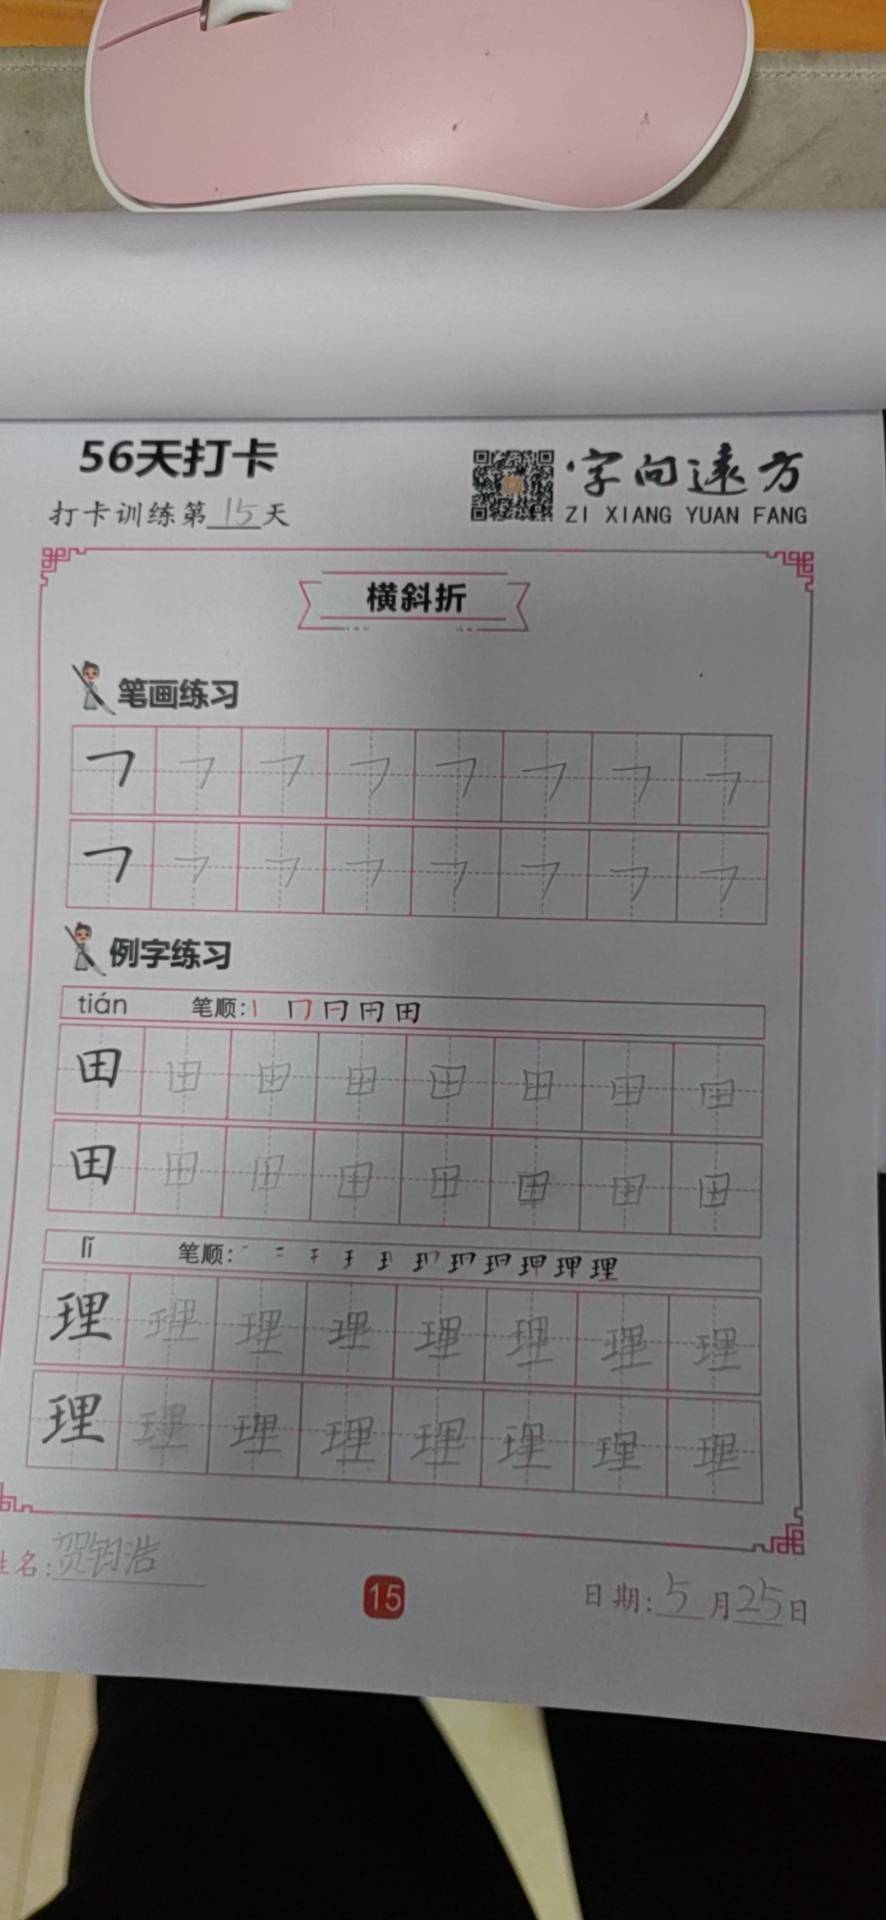 56天打卡
打卡训练第15天
字向远方
ZI XIANG YUAN FANG
横斜折
笔画练习
㇕ ㇕ ㇕ ㇕ ㇕ ㇕ ㇕ ㇕
㇕ ㇕ ㇕ ㇕ ㇕ ㇕ ㇕ ㇕
例字练习
tián 笔顺:丨 冂 日 田
田 田 田 田 田 田 田 田
田 田 田 田 田 田 田 田
lǐ 笔顺: 理
理 理 理 理 理 理 理 理
理 理 理 理 理 理 理 理
姓名:贺钧浩
15
日期:5月25日